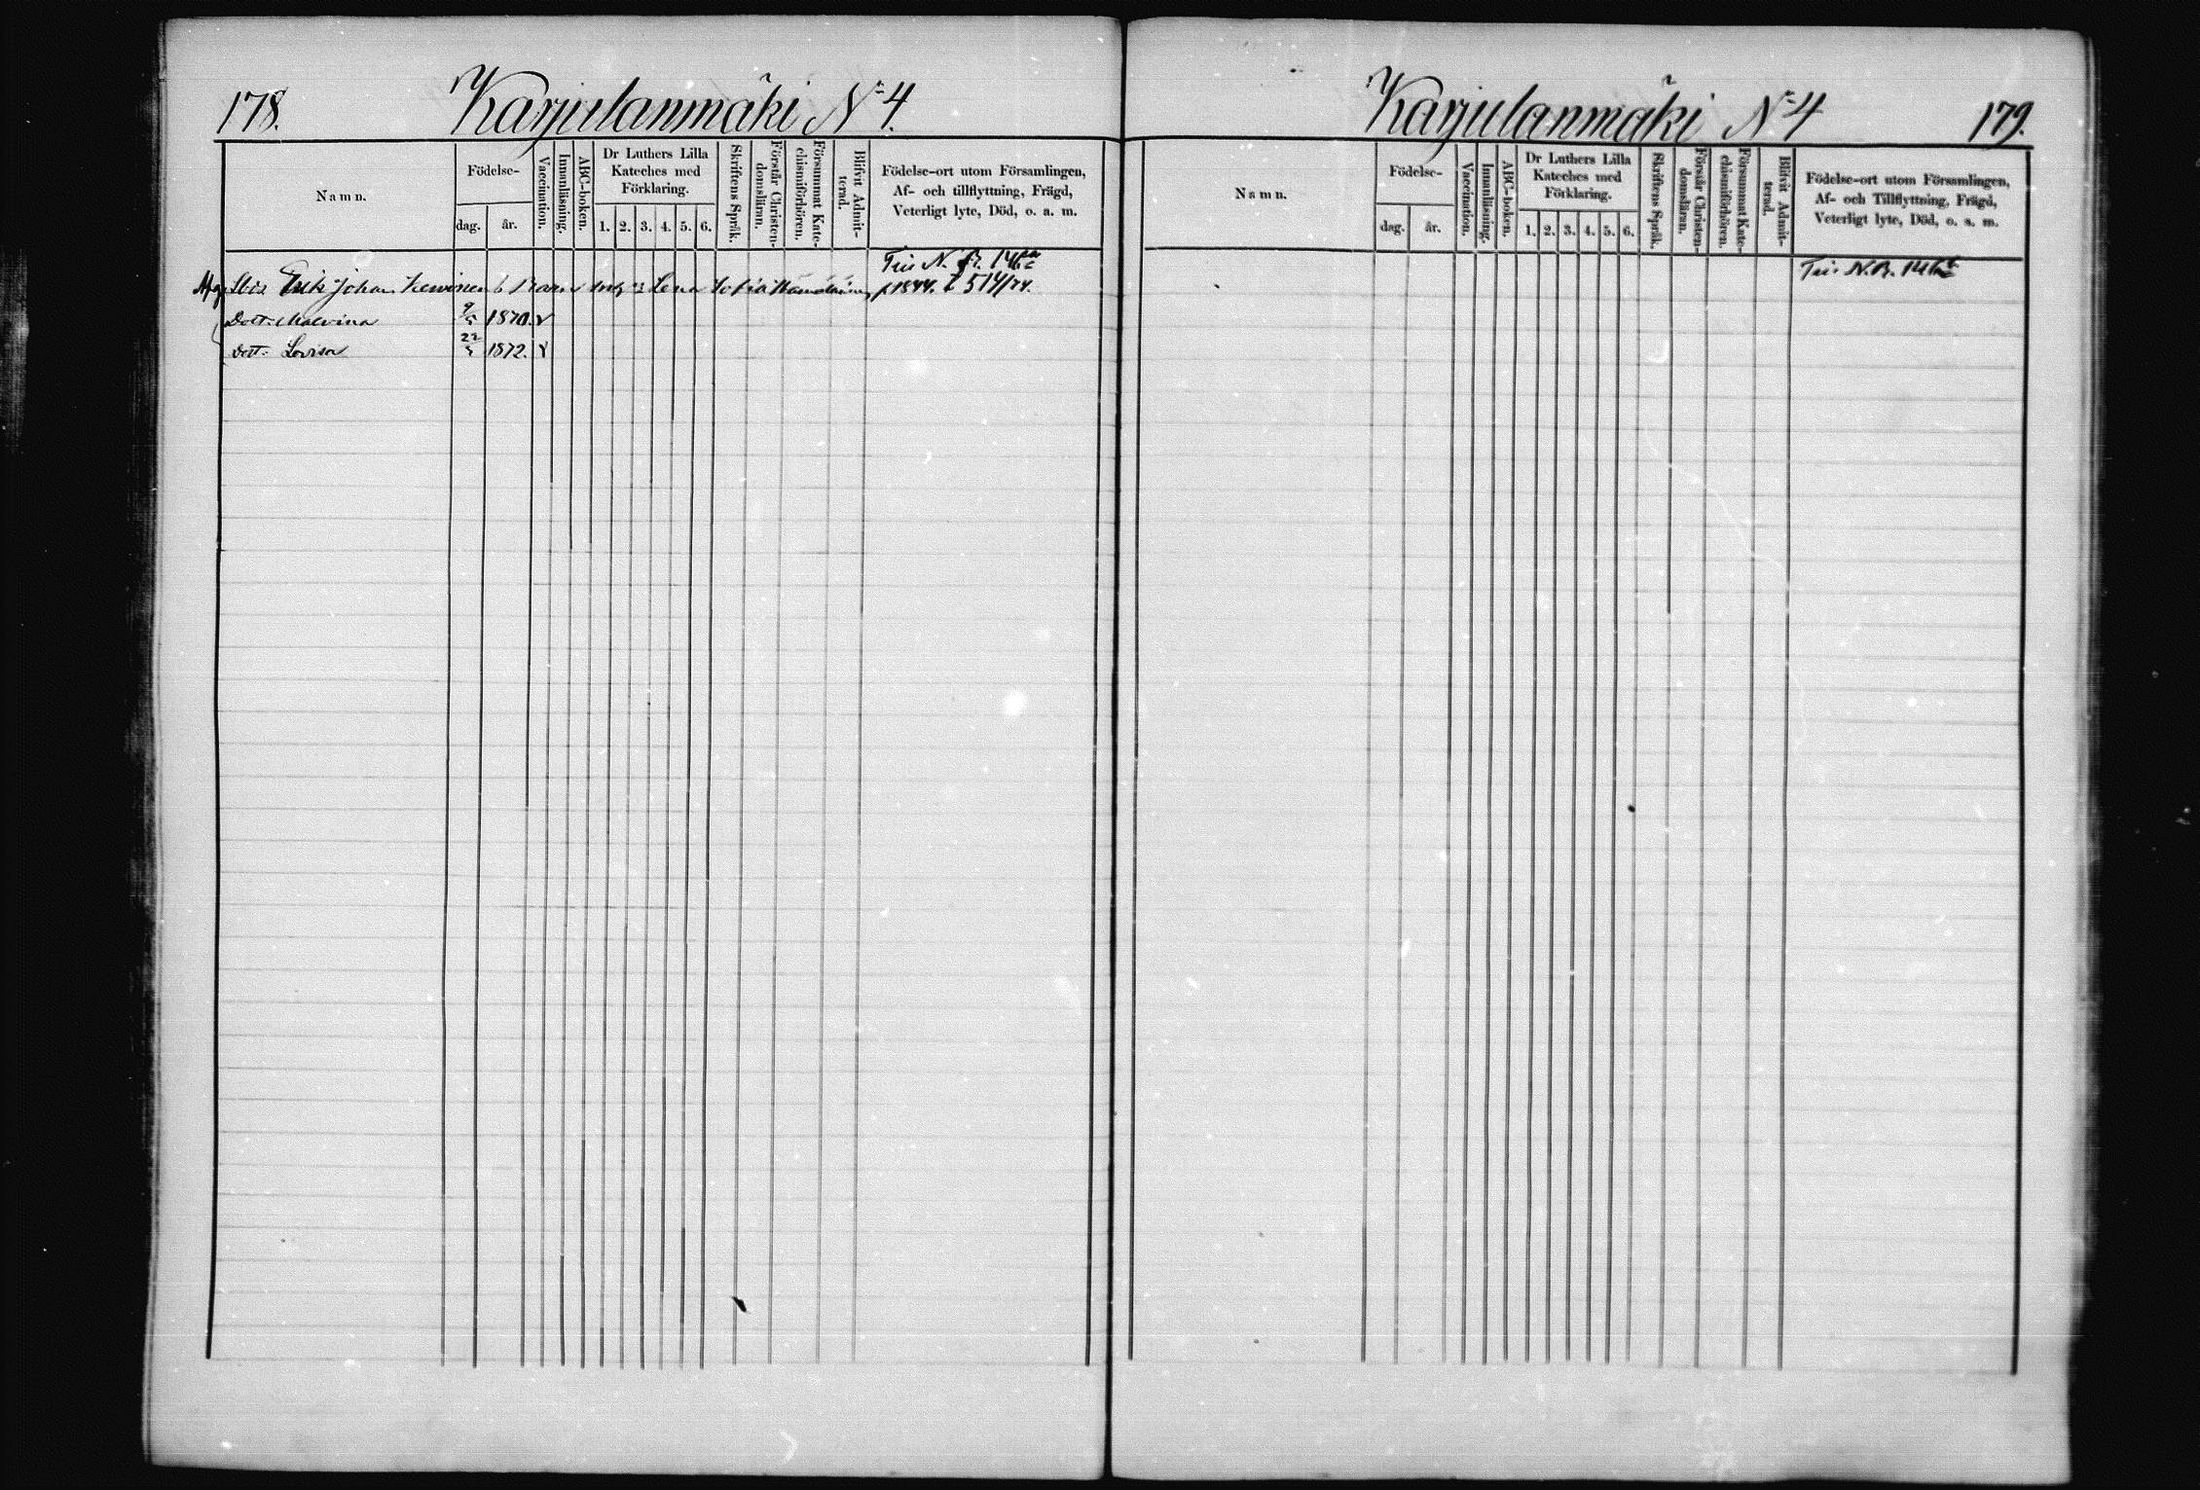 178.
Karjulanmäki No 4.
Namn.
Födelse-
dag.
år.
Vaccination.
Innanläsning.
ABC-boken.
Dr Luthers Lilla
Kateches med
Förklaring.
1. 2. 3. 4. 5. 6.
Skriftens Språk.
Förstår Christen-
domsläran.
Försummat Kate-
chismiförhören.
Blifvit Admit-
terad.
Födelse-ort utom Församlingen,
Af- och tillflyttning, Frägd,
Veterligt lyte, Död, o. a. m.
N. B. 14
Erik Johan b Barn Lena Sofia
f 1844.
Dott: Malvina 1870. v
Dott: Lovisa 22 1872. v
Karjulanmäki No 4
179.
Namn.
Födelse-
dag.
år.
Vaccination.
Innanläsning.
ABC-boken.
Dr Luthers Lilla
Kateches med
Förklaring.
1. 2. 3. 4. 5. 6.
Skriftens Språk.
Förstår Christen-
domsläran.
Försummat Kate-
chismiförhören.
Blifvit Admit-
terad.
Födelse-ort utom Församlingen,
Af- och Tillflyttning, Frägd,
Veterligt lyte, Död, o. s. m.
N. B. 14